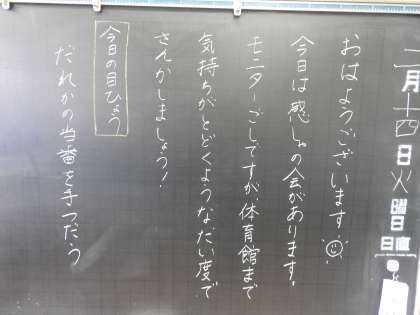 二月十四日火曜日
日直
おはようございます。
今日は感しゃの会があります。
モニターごしですが体育館まで
気持ちがとどくようなたい度で
さんかしましょう！
今日の目ひょう
だれかの当番を手つだう